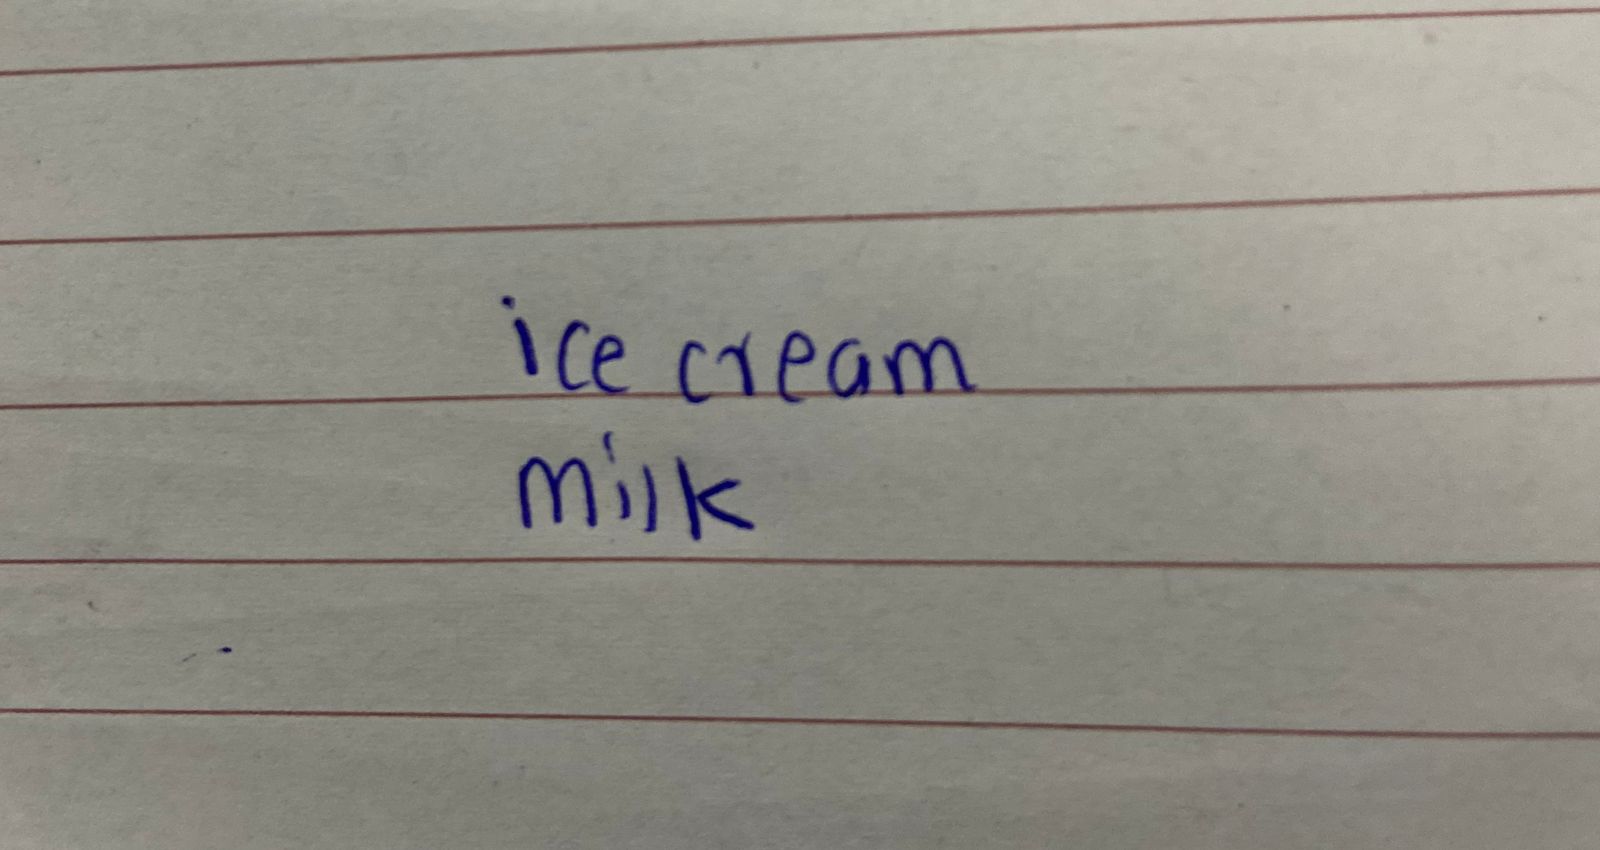 ice cream
milk